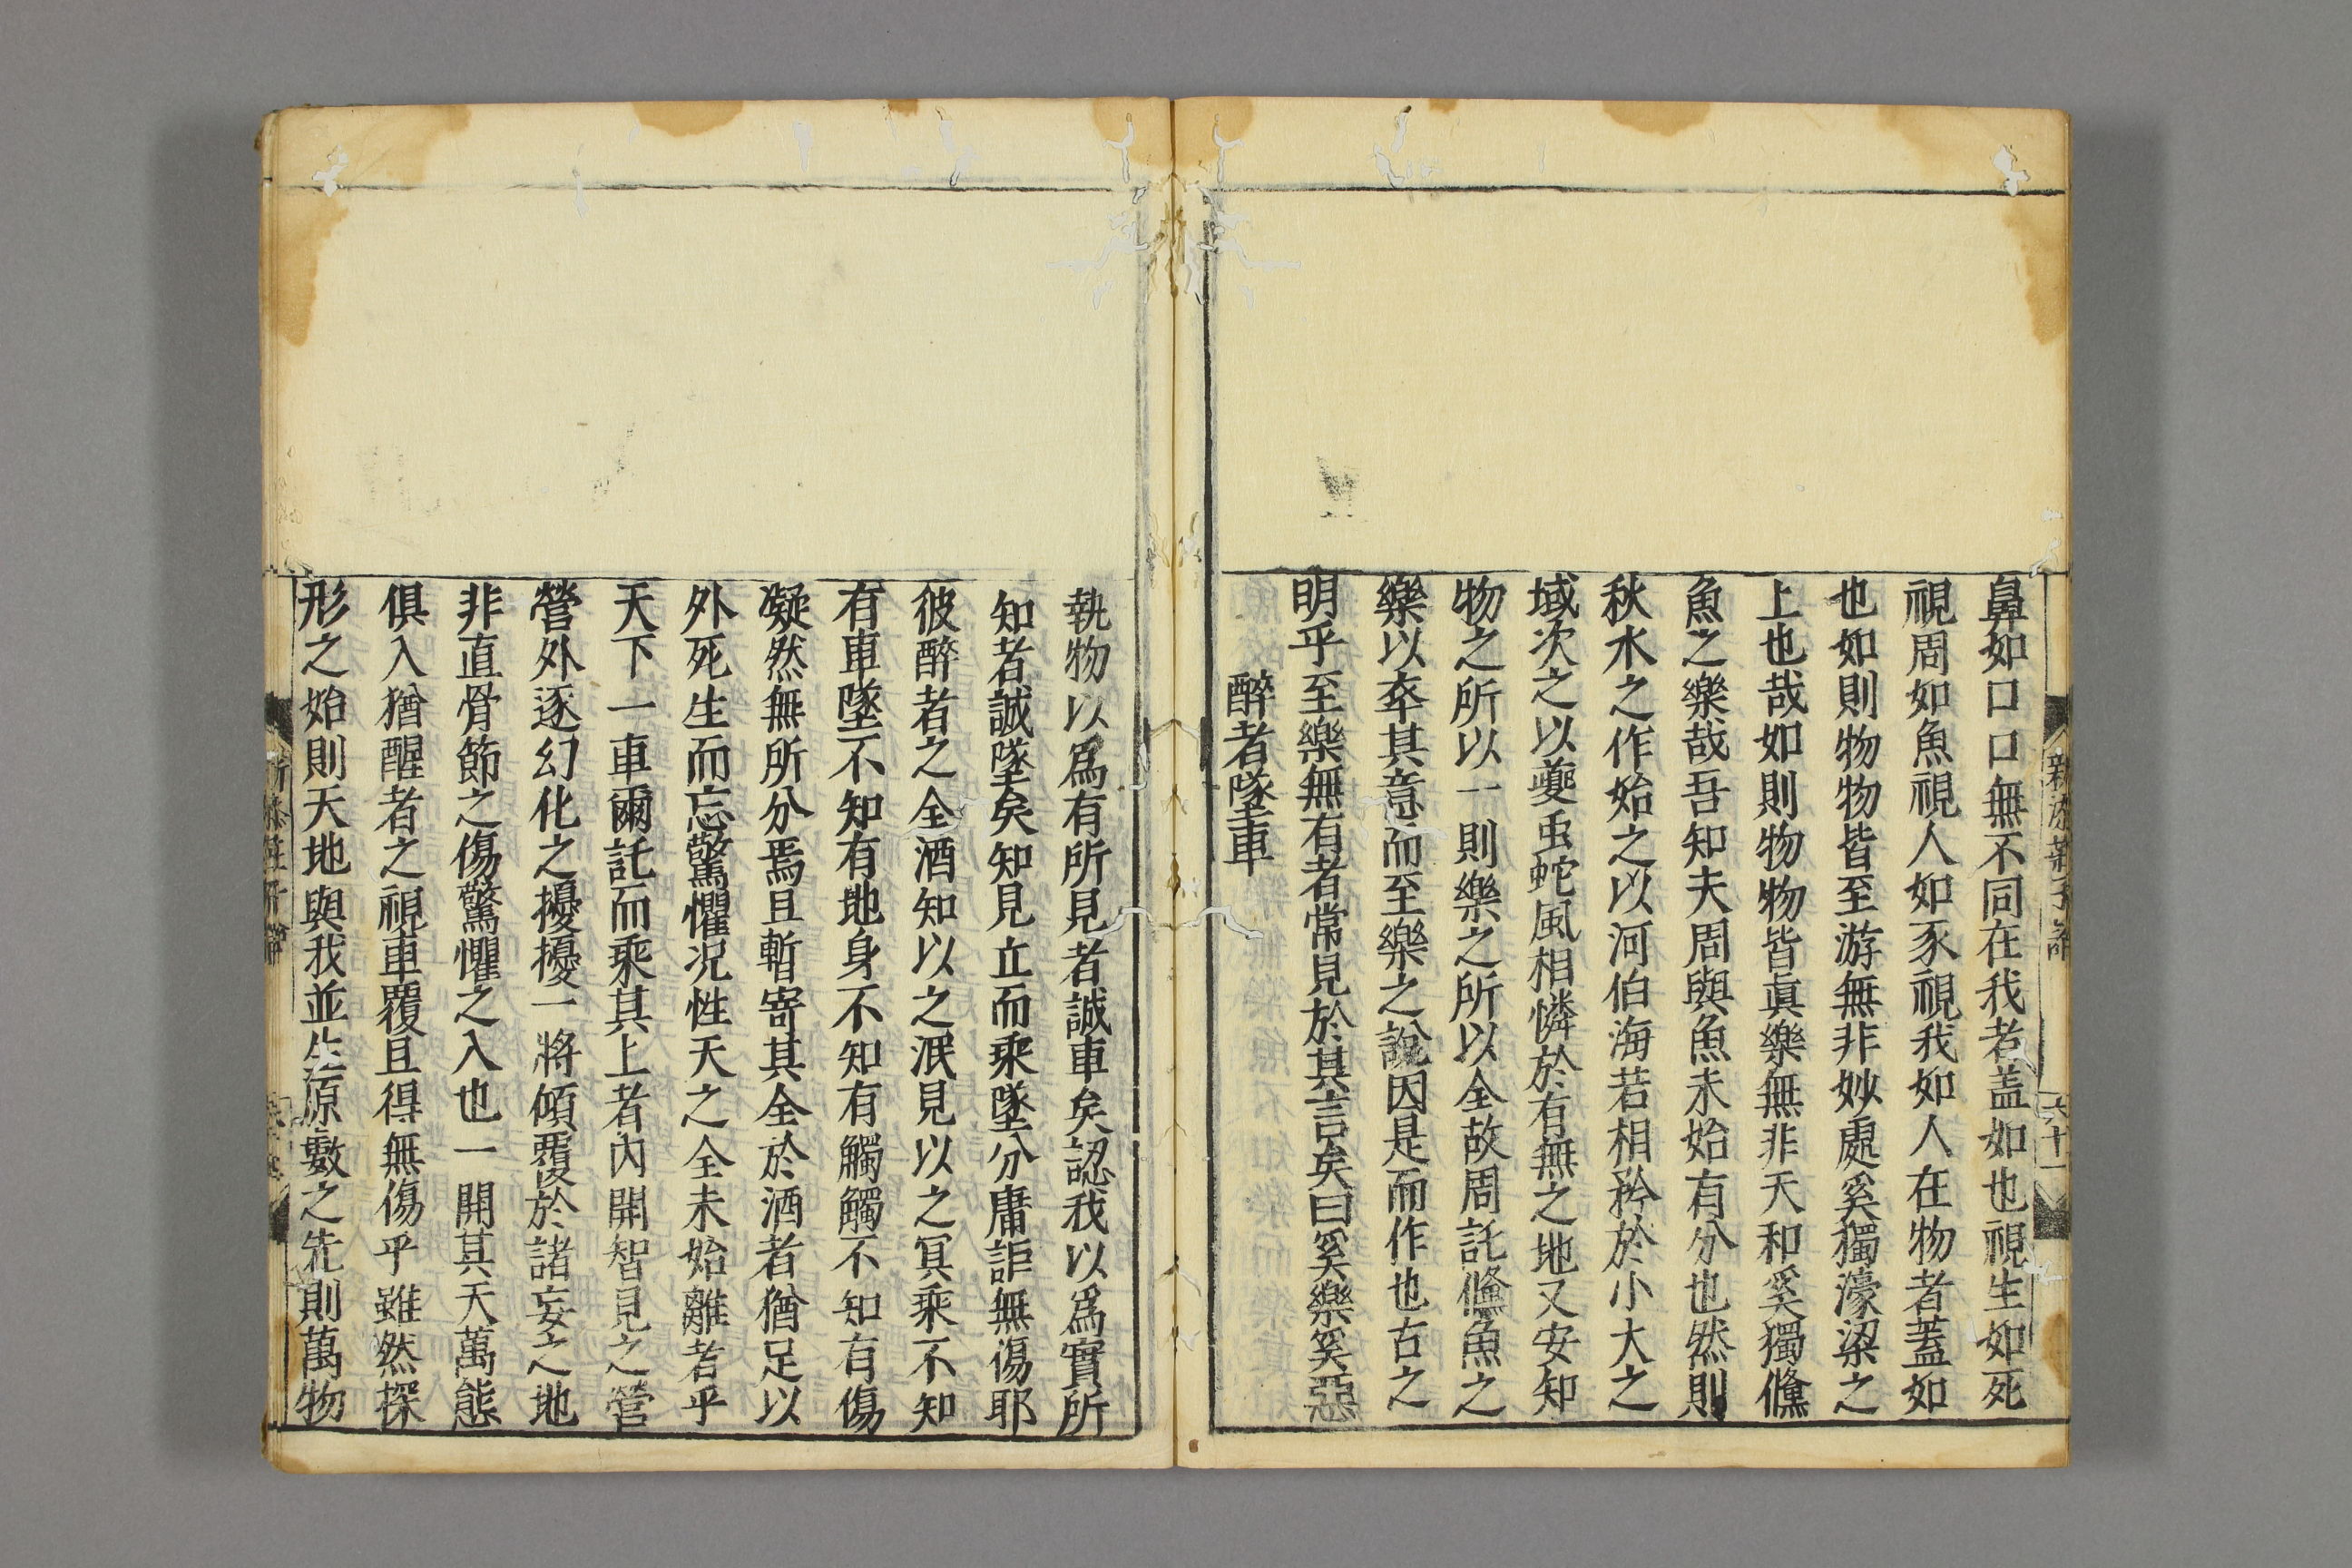 鼻如口口無不同在我者盖如也視生如死
視周如魚視人如豕視我如人在物者蓋如
也如則物物皆至游無非妙處奚獨濠梁之
上也哉如則物物皆眞樂無非天和奚獨鯈
魚之樂哉吾知夫周與魚未始有分也然則
秋水之作始之以河伯海若相矜於小大之
域次之以夔蚿蛇風相憐於有無之地又安知
物之所以一則樂之所以全故周託鯈魚之
樂以卒其意而至樂之說因是而作也古之
明乎至樂無有者常見於其言矣曰奚樂奚惡
醉者墜車
執物以爲有所見者誠車矣認我以爲實所
知者誠墜矣知見立而乘墜分庸詎無傷耶
彼醉者之全酒知以之泯見以之冥乘不知
有車墜不知有地身不知有觸觸不知有傷
凝然無所分焉且暫寄其全於酒者猶足以
外死生而忘驚懼况性天之全未始離者乎
天下一車爾託而乘其上者內開智見之營
營外逐幻化之擾擾一將傾覆於諸妄之地
非直骨節之傷驚懼之入也一開其天萬態
俱入猶醒者之視車覆且得無傷乎雖然探
形之始則天地與我並生原數之先則萬物